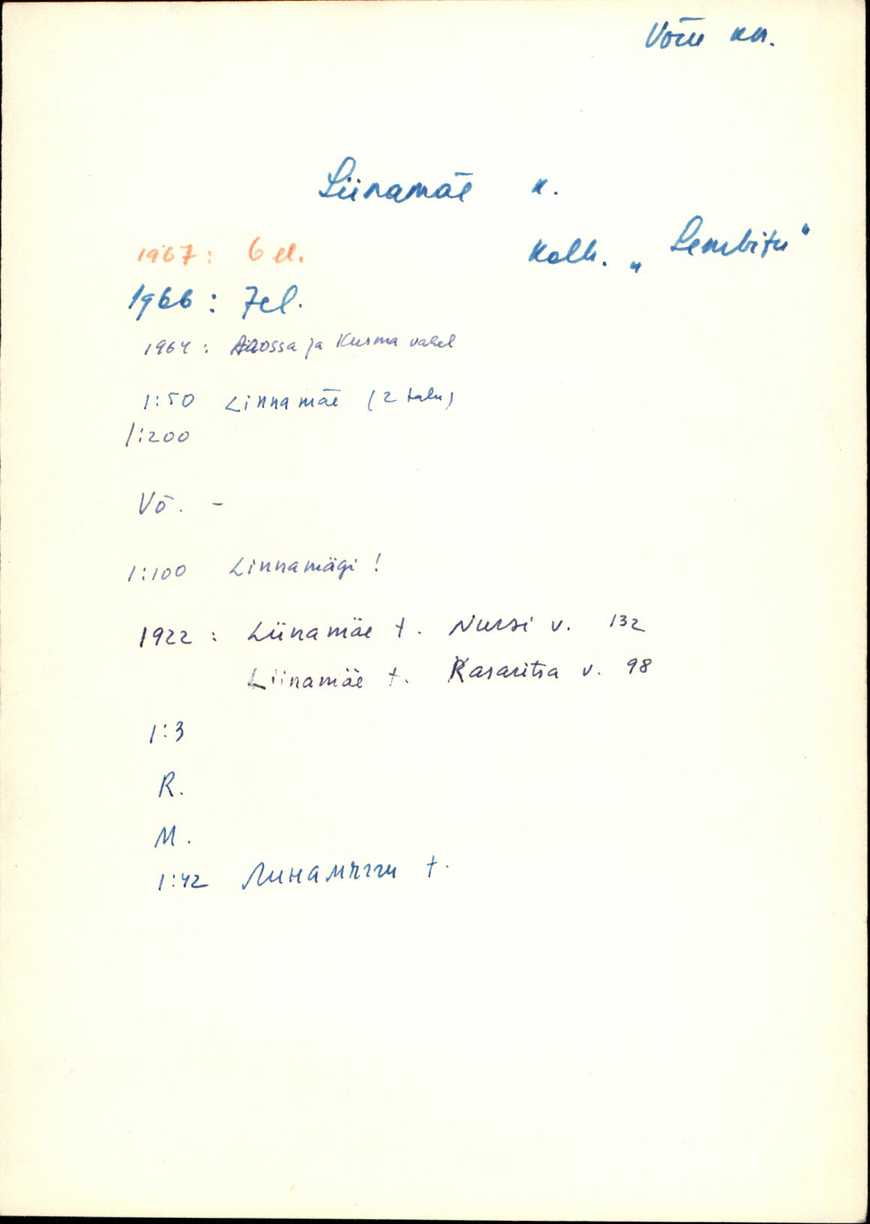 Võru kn.
Liinamäe k.
Kolh. „Lembitu"
1967: 6 el.
1966: 7 el.
1964: ja Kurma vahel
1:50 Linnamäe (2 talu)
1:200
Võ. -
1:100 Linnamägi!
1922: Liinamäe t. Nursi v. 132
Liinamäe t. Kasaritsa v. 98
1:3
R.
M.
1:42 t.